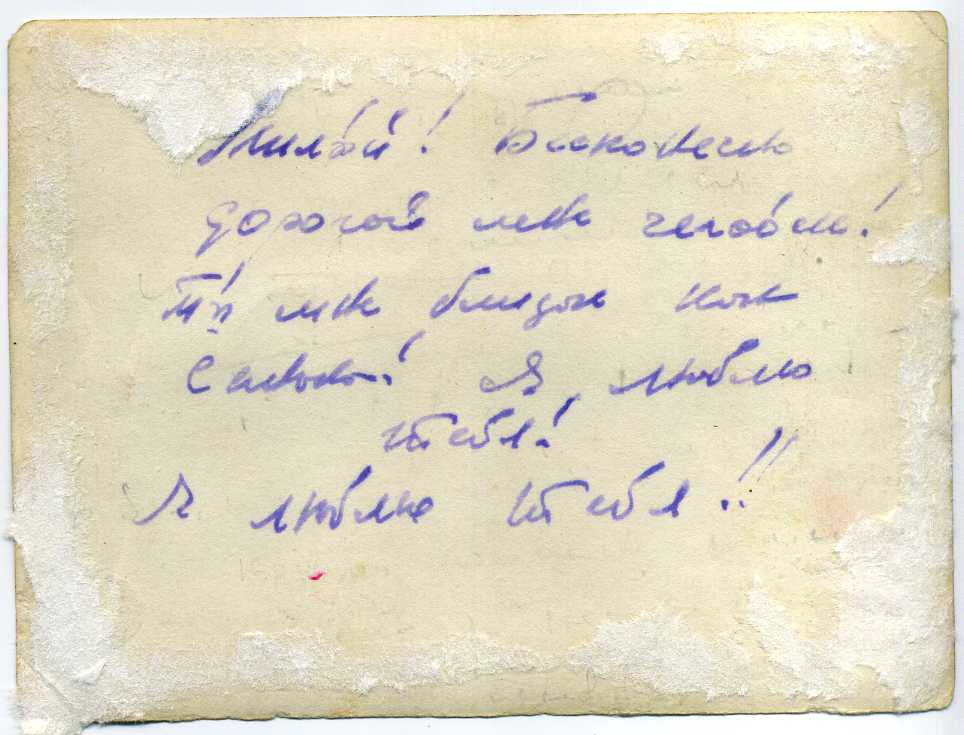 Милый! Бесконечно
дорогой мне человек!
Ты мне близок как
! Я люблю
тебя!
Я люблю тебя!!